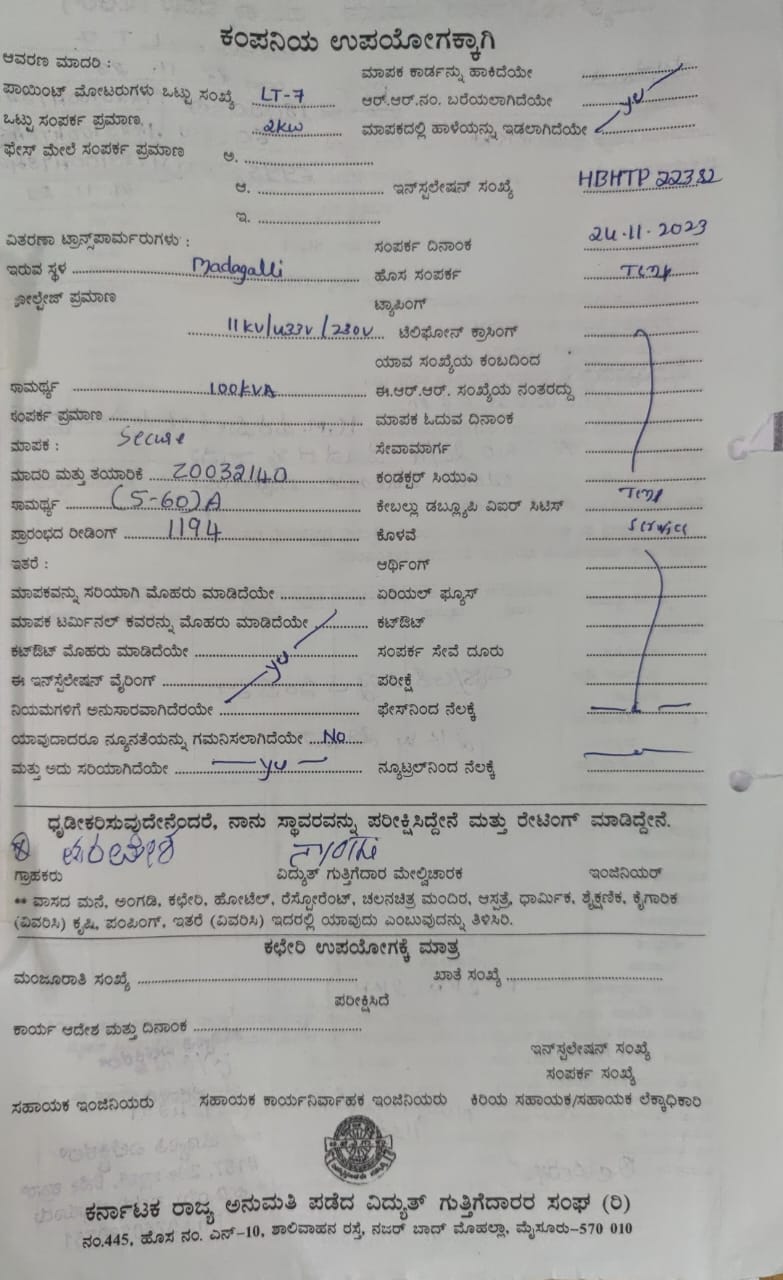 ಕಂಪನಿಯ ಉಪಯೋಗಕ್ಕಾಗಿ
ಆವರಣ ಮಾದರಿ :
ಮಾಪಕ ಕಾರ್ಡನ್ನು ಹಾಕಿದೆಯೇ
ಪಾಯಿಂಟ್ ಮೋಟರುಗಳು ಒಟ್ಟು ಸಂಖ್ಯೆ LT-7 ಆರ್.ಆರ್.ನಂ. ಬರೆಯಲಾಗಿದೆಯೇ
ಒಟ್ಟು ಸಂಪರ್ಕ ಪ್ರಮಾಣ. 2kw ಮಾಪಕದಲ್ಲಿ ಹಾಳೆಯನ್ನು ಇಡಲಾಗಿದೆಯೇ
ಫೇಸ್ ಮೇಲೆ ಸಂಪರ್ಕ ಪ್ರಮಾಣ ಅ.
ಆ. ಇನ್‌ಸ್ಟಲೇಷನ್ ಸಂಖ್ಯೆ HBHTP 22382
ಇ.
ವಿತರಣಾ ಟ್ರಾನ್ಸ್‌ಪಾರ್ಮರುಗಳು : ಸಂಪರ್ಕ ದಿನಾಂಕ 24.11.2023
ಇರುವ ಸ್ಥಳ Madagalli ಹೊಸ ಸಂಪರ್ಕ Temp
ವೋಲ್ಟೇಜ್ ಪ್ರಮಾಣ ಟ್ಯಾಪಿಂಗ್
11kV/433V/230V ಟೆಲಿಫೋನ್ ಕ್ರಾಸಿಂಗ್
ಯಾವ ಸಂಖ್ಯೆಯ ಕಂಬದಿಂದ
ಸಾಮರ್ಥ್ಯ 100kVA ಈ.ಆರ್.ಆರ್. ಸಂಖ್ಯೆಯ ನಂತರದ್ದು
ಸಂಪರ್ಕ ಪ್ರಮಾಣ ಮಾಪಕ ಓದುವ ದಿನಾಂಕ
ಮಾಪಕ : Secure ಸೇವಾಮಾರ್ಗ
ಮಾದರಿ ಮತ್ತು ತಯಾರಿಕೆ Z0032140 ಕಂಡಕ್ಟರ್ ಸಿಯುವಿ
ಸಾಮರ್ಥ್ಯ (5-60)A ಕೇಬಲ್ಲು ಡಬ್ಲ್ಯೂಪಿ ವಿಐರ್ ಸಿಟಿಸ್ Temp
ಪ್ರಾರಂಭದ ರೀಡಿಂಗ್ 1194 ಕೊಳವೆ Service
ಇತರೆ : ಆರ್ಥಿಂಗ್
ಮಾಪಕವನ್ನು ಸರಿಯಾಗಿ ಮೊಹರು ಮಾಡಿದೆಯೇ ಏರಿಯಲ್ ಫ್ಯೂಸ್
ಮಾಪಕ ಟರ್ಮಿನಲ್ ಕವರನ್ನು ಮೊಹರು ಮಾಡಿದೆಯೇ ಕಟ್‌ಔಟ್
ಕಟ್‌ಔಟ್ ಮೊಹರು ಮಾಡಿದೆಯೇ ಸಂಪರ್ಕ ಸೇವೆ ದೂರು
ಈ ಇನ್‌ಸ್ಟೆಲೇಷನ್ ವೈರಿಂಗ್ ಪರೀಕ್ಷೆ
ನಿಯಮಗಳಿಗೆ ಅನುಸಾರವಾಗಿದೆರಯೇ ಫೇಸ್‌ನಿಂದ ನೆಲಕ್ಕೆ
ಯಾವುದಾದರೂ ನ್ಯೂನತೆಯನ್ನು ಗಮನಿಸಲಾಗಿದೆಯೇ No
ಮತ್ತು ಅದು ಸರಿಯಾಗಿದೆಯೇ ನ್ಯೂಟ್ರಲ್‌ನಿಂದ ನೆಲಕ್ಕೆ
ಧೃಡೀಕರಿಸುವುದೇನೆಂದರೆ, ನಾನು ಸ್ಥಾವರವನ್ನು ಪರೀಕ್ಷಿಸಿದ್ದೇನೆ ಮತ್ತು ರೇಟಿಂಗ್ ಮಾಡಿದ್ದೇನೆ.
ಗ್ರಾಹಕರು ವಿದ್ಯುತ್ ಗುತ್ತಿಗೆದಾರ ಮೇಲ್ವಿಚಾರಕ ಇಂಜಿನಿಯರ್
** ವಾಸದ ಮನೆ, ಅಂಗಡಿ, ಕಛೇರಿ, ಹೋಟೆಲ್, ರೆಸ್ಟೋರೆಂಟ್, ಚಲನಚಿತ್ರ ಮಂದಿರ, ಆಸ್ಪತ್ರೆ, ಧಾರ್ಮಿಕ, ಶೈಕ್ಷಣಿಕ, ಕೈಗಾರಿಕ
(ವಿವರಿಸಿ) ಕೃಷಿ, ಪಂಪಿಂಗ್, ಇತರೆ (ವಿವರಿಸಿ) ಇದರಲ್ಲಿ ಯಾವುದು ಎಂಬುವುದನ್ನು ತಿಳಿಸಿರಿ.
ಕಛೇರಿ ಉಪಯೋಗಕ್ಕೆ ಮಾತ್ರ
ಮಂಜೂರಾತಿ ಸಂಖ್ಯೆ ಖಾತೆ ಸಂಖ್ಯೆ
ಪರೀಕ್ಷಿಸಿದೆ
ಕಾರ್ಯ ಆದೇಶ ಮತ್ತು ದಿನಾಂಕ
ಇನ್‌ಸ್ಟಲೇಷನ್ ಸಂಖ್ಯೆ
ಸಂಪರ್ಕ ಸಂಖ್ಯೆ
ಸಹಾಯಕ ಇಂಜಿನಿಯರು ಸಹಾಯಕ ಕಾರ್ಯನಿರ್ವಾಹಕ ಇಂಜಿನಿಯರು ಕಿರಿಯ ಸಹಾಯಕ/ಸಹಾಯಕ ಲೆಕ್ಕಾಧಿಕಾರಿ
ಕರ್ನಾಟಕ ರಾಜ್ಯ ಅನುಮತಿ ಪಡೆದ ವಿದ್ಯುತ್ ಗುತ್ತಿಗೆದಾರರ ಸಂಘ (ರಿ)
ನಂ.445, ಹೊಸ ನಂ. ಎನ್-10, ಶಾಲಿವಾಹನ ರಸ್ತೆ, ನಜರ್ ಬಾದ್ ಮೊಹಲ್ಲಾ, ಮೈಸೂರು-570 010